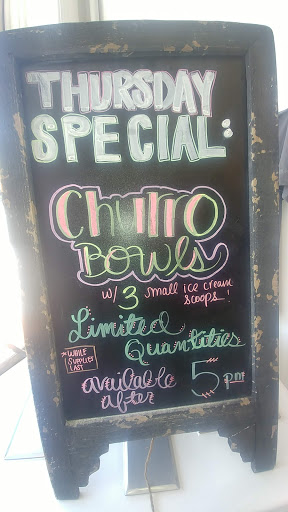 THURSDAY
SPECIAL:
Churro
BOWLS
w/ 3 small ice cream
scoops!
Limited
Quantities
*WHILE
SUPPLIES
LAST
available
after
5 pm